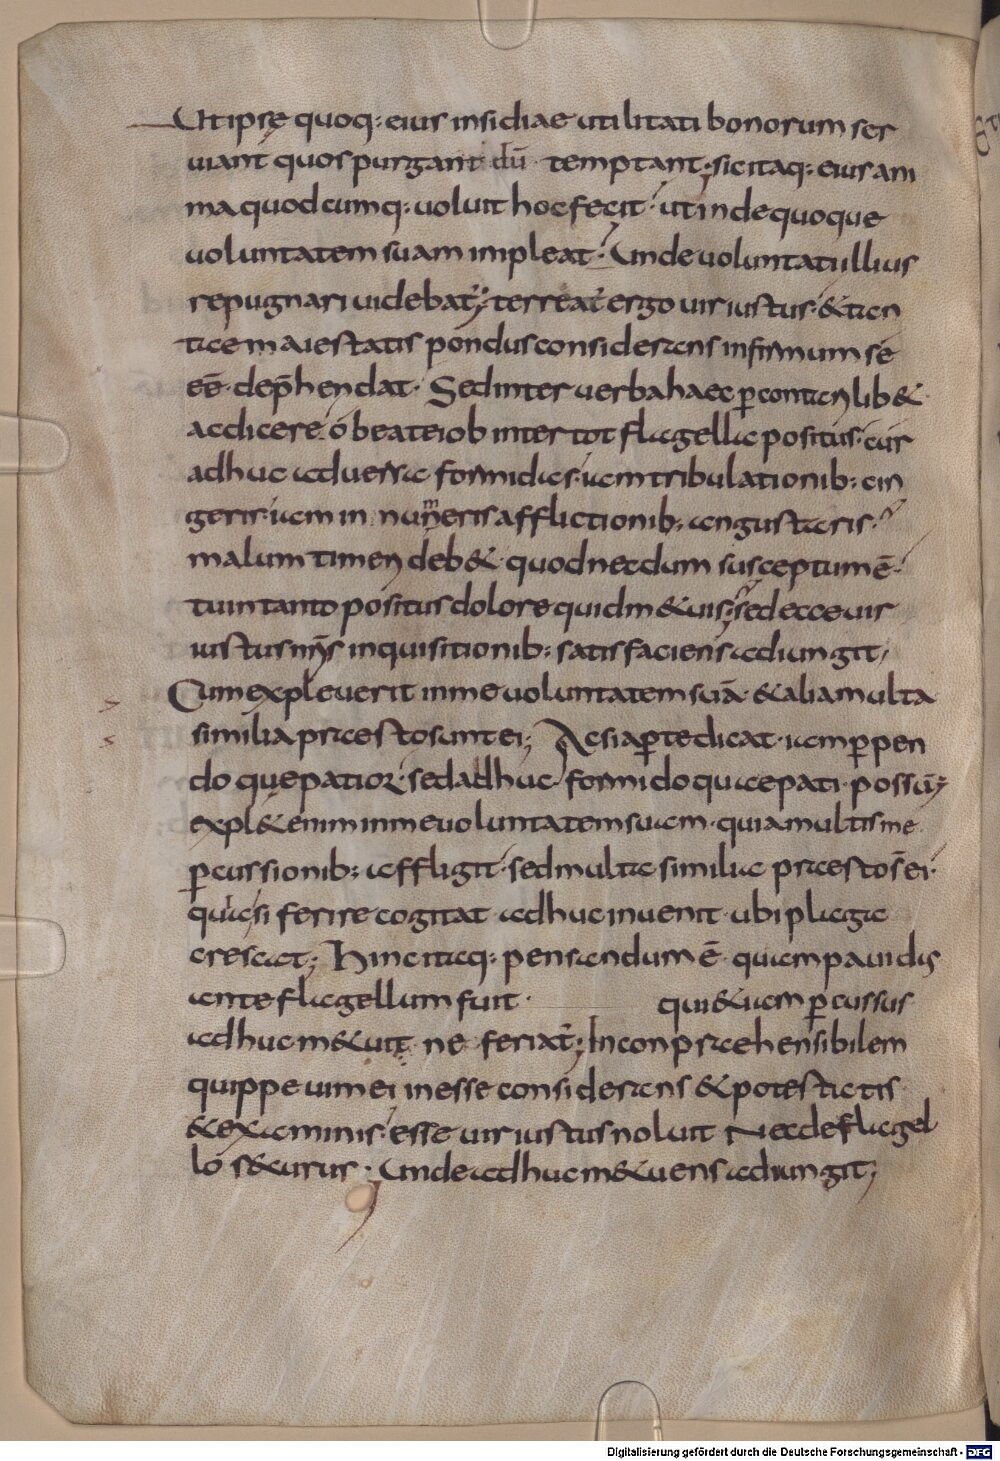 Ut ipse quoq: eius insidiae utilitati bonorum ser
uiant quos purgant dū temptant; sic itaq: eius ani
ma quodcumq: uoluit hoc fecit · ut inde quoque
uoluntatem suam impleat · Unde uoluntati illius
repugnari uidebat; terreat ergo uir iustus · & tan
tae maiestatis pondus considerans infirmum se
eē · dep̄hendat · Sed inter uerba haec p̱contan lib&
ac dicere · o beate iob inter tot flagella positus · cur
adhuc aduersa formidas · iam tribulationib: cin
geris · iam in numeris afflictionib: angustaris ·
malum timen deb& · quod necdum susceptum ē ·
tu in tanto positus dolore quid m&uis; sed ecce uir
iustus nr̄is inquisitionib: satisfaciens adiungit,
Cum expleuerit in me uoluntatem suā · & alia multa
similia praesto sunt ei; Ac si ap̱te dicat · iam p̱pen
do que patior · sed adhuc formido quae pati possū;
expl& enim in me uoluntatem suam · quia multis me
p̱cussionib: affligit · sed multa similia praesto s̄ ei ·
quia si ferire cogitat adhuc inuenit ubi plaga
crescat; Hinc itaq: pensandum ē quam pauidus
ante flagellum fuit · qui & iam p̱cussus
adhuc m&uit ne feriat; Inconpraehensibilem
quippe uim ei inesse considerans & potestatis
& examinis · esse uir iustus noluit Nec de flagel
lo s&urus; Unde adhuc m&uens adiungit;
Digitalisierung gefördert durch die Deutsche Forschungsgemeinschaft - DFG